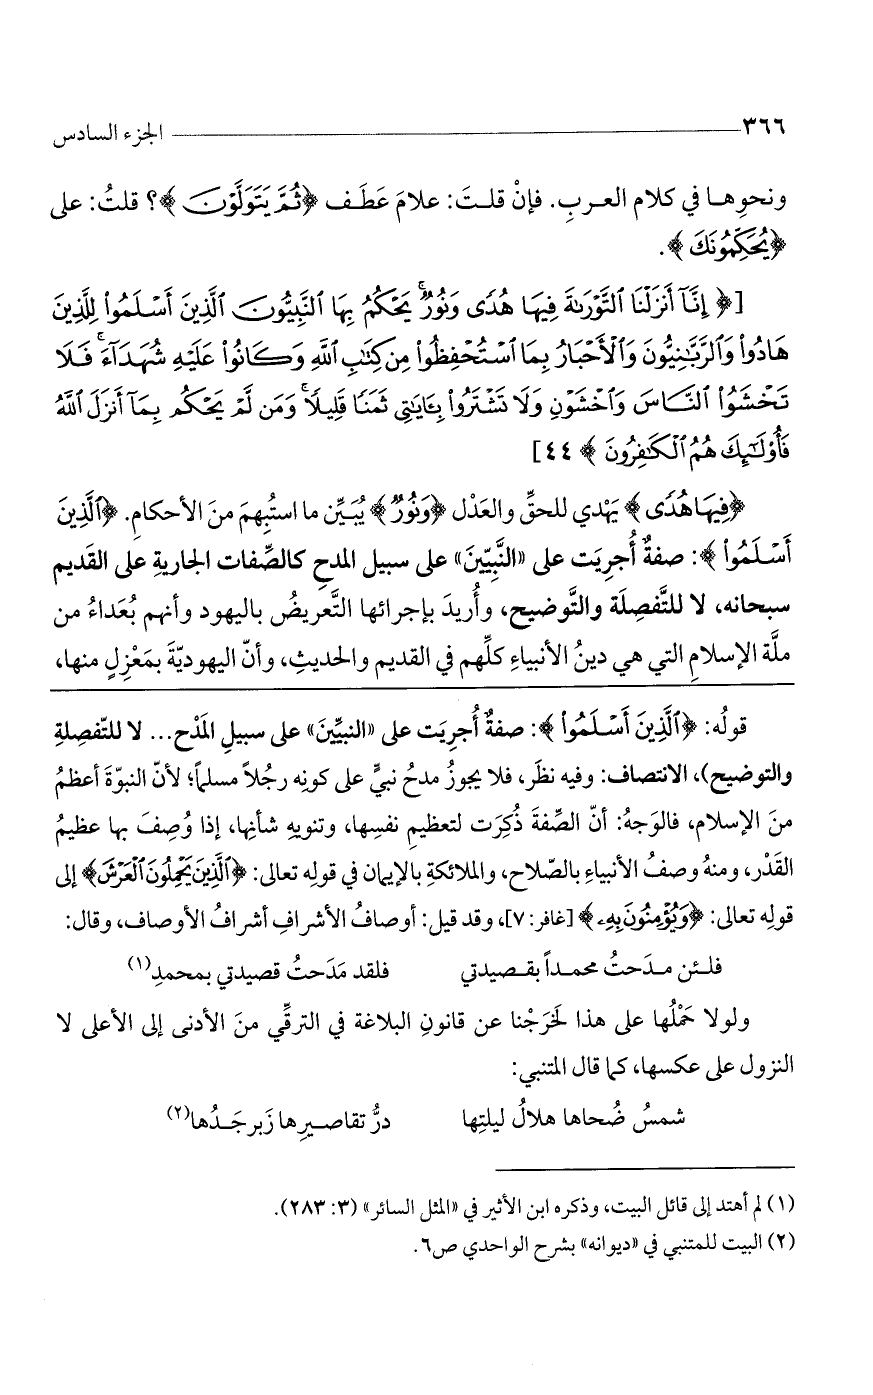 ٣٦٦ الجزء السادس
ونحوِهـا في كلام العـربِ. فإنْ قلـتَ: علامَ عَطَـف ﴿ثُمَّ يَتَوَلَّوْنَ﴾؟ قلتُ: على
﴿يُحَكِّمُونَكَ﴾.
[﴿إِنَّآ أَنزَلْنَا ٱلتَّوْرَىٰةَ فِيهَا هُدًى وَنُورٌ ۚ يَحْكُمُ بِهَا ٱلنَّبِيُّونَ ٱلَّذِينَ أَسْلَمُوا۟ لِلَّذِينَ
هَادُوا۟ وَٱلرَّبَّـٰنِيُّونَ وَٱلْأَحْبَارُ بِمَا ٱسْتُحْفِظُوا۟ مِن كِتَـٰبِ ٱللَّهِ وَكَانُوا۟ عَلَيْهِ شُهَدَآءَ ۚ فَلَا
تَخْشَوُا۟ ٱلنَّاسَ وَٱخْشَوْنِ وَلَا تَشْتَرُوا۟ بِـَٔايَـٰتِى ثَمَنًا قَلِيلًا ۚ وَمَن لَّمْ يَحْكُم بِمَآ أَنزَلَ ٱللَّهُ
فَأُو۟لَـٰٓئِكَ هُمُ ٱلْكَـٰفِرُونَ﴾ ٤٤]
﴿فِيهَا هُدًى﴾ يَهْدي للحقِّ والعَدْل ﴿وَنُورٌ﴾ يُبَيِّن ما استُبهِمَ منَ الأحكامِ. ﴿ٱلَّذِينَ
أَسْلَمُوا۟﴾: صفةٌ أُجرِيَت على «النَّبِيِّينَ» على سبيل المدحِ كالصِّفات الجاريةِ على القَديم
سبحانه، لا للتَّفصِلَة والتَّوضيح، وأُريدَ بإجرائها التَّعريضُ باليهود وأنهم بُعَداءُ من
ملَّة الإسلامِ التي هي دينُ الأنبياءِ كلِّهم في القديم والحديثِ، وأنّ اليهوديّةَ بمَعْزِلٍ منها،
قولُه: ﴿ٱلَّذِينَ أَسْلَمُوا۟﴾: صفةٌ أُجرِيَت على «النبيِّينَ» على سبيلِ المَدْح... لا للتّفصِلةِ
والتوضيح)، الانتصاف: وفيه نظَر، فلا يجوزُ مدحُ نبيٍّ على كونِه رجُلاً مسلماً؛ لأنّ النبوّةَ أعظمُ
منَ الإسلام، فالوَجهُ: أنّ الصِّفةَ ذُكِرَت لتعظيمِ نفسِها، وتنويهِ شأنِها، إذا وُصِفَ بها عظيمُ
القَدْر، ومنهُ وصفُ الأنبياءِ بالصّلاح، والملائكةِ بالإيمان في قولِه تعالى: ﴿ٱلَّذِينَ يَحْمِلُونَ ٱلْعَرْشَ﴾ إلى
قولِه تعالى: ﴿وَيُؤْمِنُونَ بِهِۦ﴾ [غافر: ٧]، وقد قيل: أوصافُ الأشرافِ أشرافُ الأوصاف، وقال:
فلـئن مـدَحتُ محمـداً بقـصيدتي فلقد مَدَحتُ قصيدتي بمحمدِ(١)
ولولا حَمْلُها على هذا لَخَرَجْنا عن قانونِ البلاغة في الترقِّي منَ الأدنى إلى الأعلى لا
النزول على عكسها، كما قال المتنبي:
شمسُ ضُحاها هلالُ ليلتِها درُّ تقاصـيرِها زَبرجَـدُها(٢)
(١) لم أهتد إلى قائل البيت، وذكره ابن الأثير في «المثل السائر» (٣: ٢٨٣).
(٢) البيت للمتنبي في «ديوانه» بشرح الواحدي ص٦.